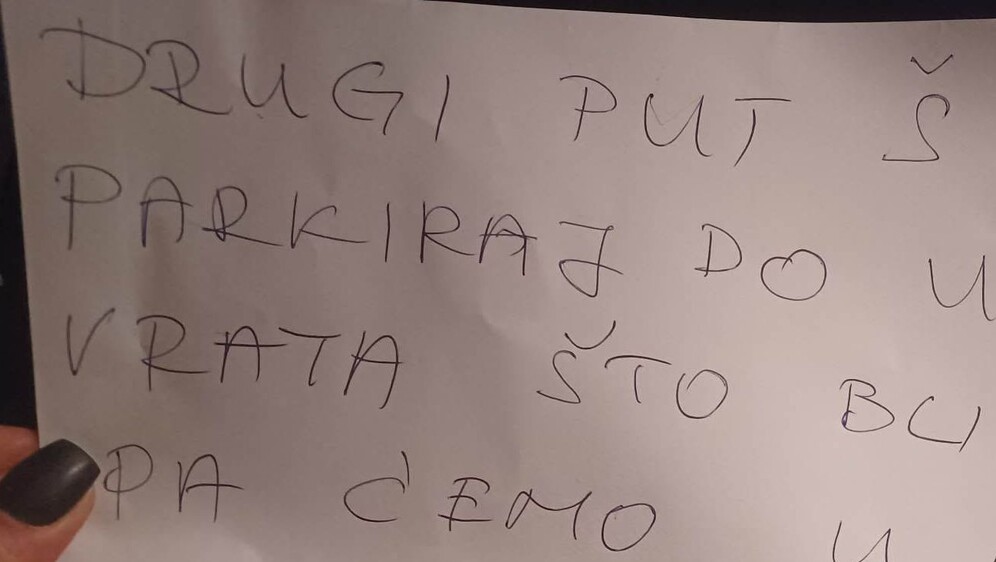 DRUGI PUT Š
PARKIRAJ DO U
VRATA ŠTO BLI
PA ĆEMO U